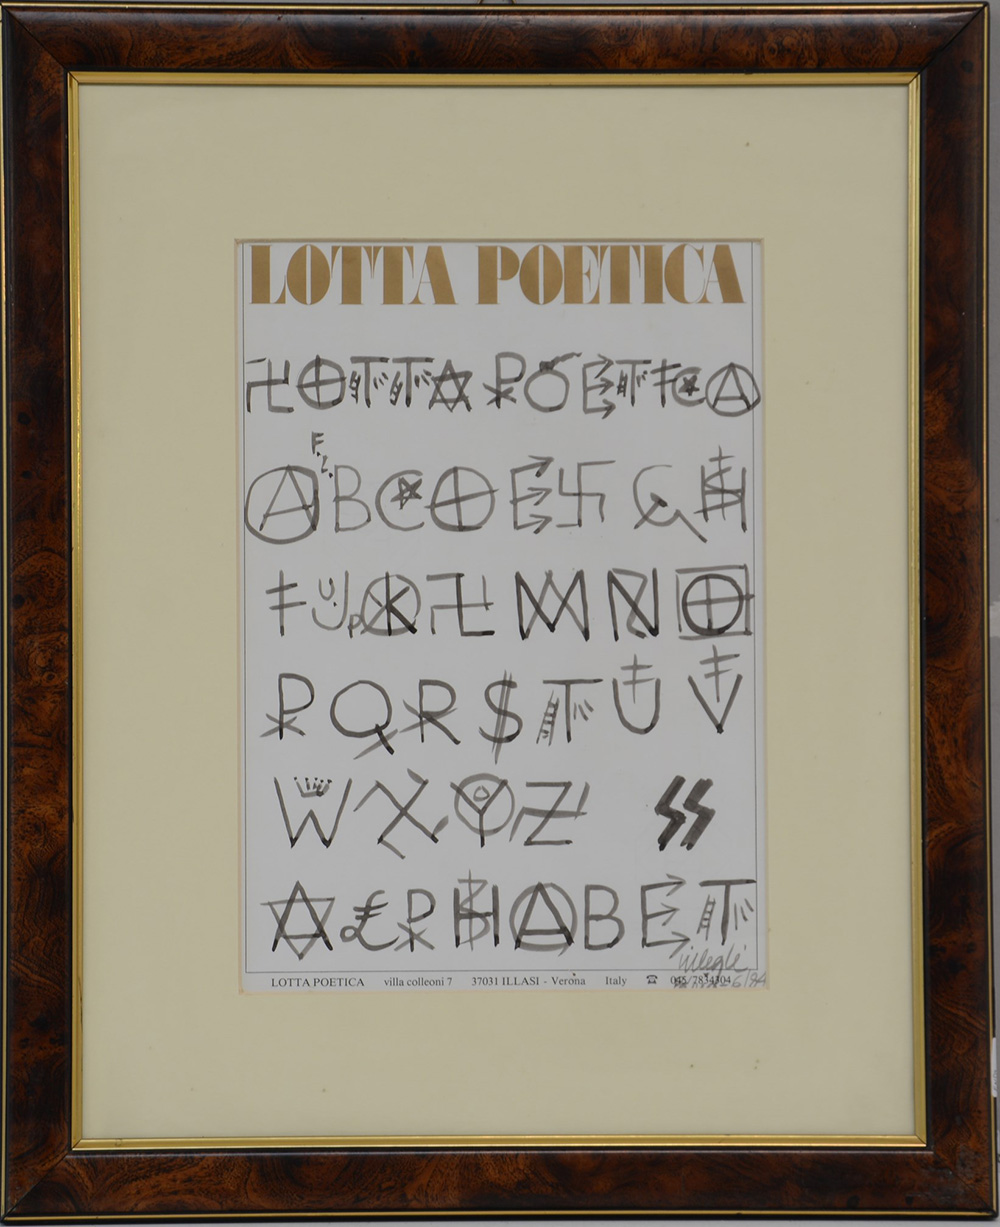 LOTTA POETICA
LOTTA POETICA
ABCDEF GH
IJKLMNO
PQRSTUV
WXYZ SS
ALPHABET
villeglé
LOTTA POETICA villa colleoni 7 37031 ILLASI - Verona Italy ☎ 045/7834304